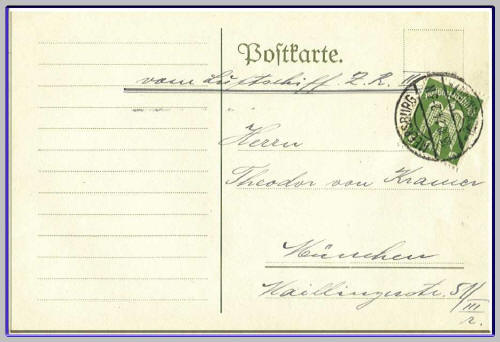 Postkarte.
vom Luftschiff Z. R. III
Herrn
Theodor von Kramer
München
Maillingerstr. 51/
III
r.